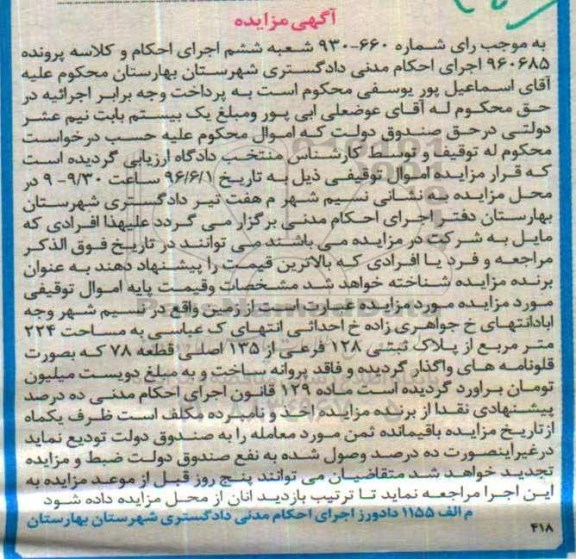 آگهی مزایده
به موجب رای شماره ۶۶۰-۹۳۰ شعبه ششم اجرای احکام و کلاسه پرونده
۹۶۰۶۸۵ اجرای احکام مدنی دادگستری شهرستان بهارستان محکوم علیه
آقای اسماعیل پور یوسفی محکوم است به پرداخت وجه برابر اجرائیه در
حق محکوم له آقای عوضعلی ابی پور ومبلغ یک بیستم بابت نیم عشر
دولتی درحق صندوق دولت که اموال محکوم علیه حسب درخواست
محکوم له توقیف و توسط کارشناس منتخب دادگاه ارزیابی گردیده است
که قرار مزایده اموال توقیفی ذیل به تاریخ ۹۶/۶/۱ ساعت ۹/۳۰- ۹ در
محل مزایده به نشانی نسیم شهر م هفت تیر دادگستری شهرستان
بهارستان دفتر اجرای احکام مدنی برگزار می گردد علیهذا افرادی که
مایل به شرکت در مزایده می باشند می توانند در تاریخ فوق الذکر
مراجعه و فرد یا افرادی که بالاترین قیمت را پیشنهاد دهند به عنوان
برنده مزایده شناخته خواهد شد مشخصات وقیمت پایه اموال توقیفی
مورد مزایده مورد مزایده عبارت است از زمین واقع در نسیم شهر وجه
ابادانتهای خ جواهری زاده خ احداثی انتهای ک عباسی به مساحت ۲۲۴
متر مربع از پلاک ثبتی ۱۲۸ فرعی از ۱۳۵ اصلی قطعه ۷۸ که بصورت
قلونامه های واگذار گردیده و فاقد پروانه ساخت و به مبلغ دویست میلیون
تومان براورد گردیده است ماده ۱۲۹ قانون اجرای احکام مدنی ده درصد
پیشنهادی نقدا از برنده مزایده اخذ و نامبرده مکلف است ظرف یکماه
از تاریخ مزایده باقیمانده ثمن مورد معامله را به صندوق دولت تودیع نماید
درغیراینصورت ده درصد وصول شده به نفع صندوق دولت ضبط و مزایده
تجدید خواهد شد متقاضیان می توانند پنج روز قبل از موعد مزایده به
این اجرا مراجعه نماید تا ترتیب بازدید انان از محل مزایده داده شود
م الف ۱۱۵۵ دادورز اجرای احکام مدنی دادگستری شهرستان بهارستان
۴۱۸